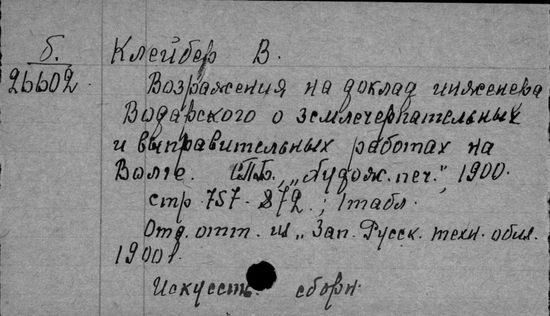 б.
26602.
Клейбер В.
Возражения на доклад инженера
Водарского о землечерпательных
и выправительных работах на
Волге. СПБ., „Худож. печ.", 1900.
стр. 757-872.; 1 табл.
Отд. отт. из „Зап. Русск. техн. общ.
1900 г.
Искусств. сборн.